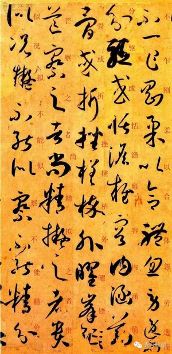 不一乍剛柔以合體忽勞逸而
分驅或恬澹雍容內涵筋
骨或折挫槎枿外曜鋒
芒察之者尚精擬之者貴
似況擬不能似察不能精分